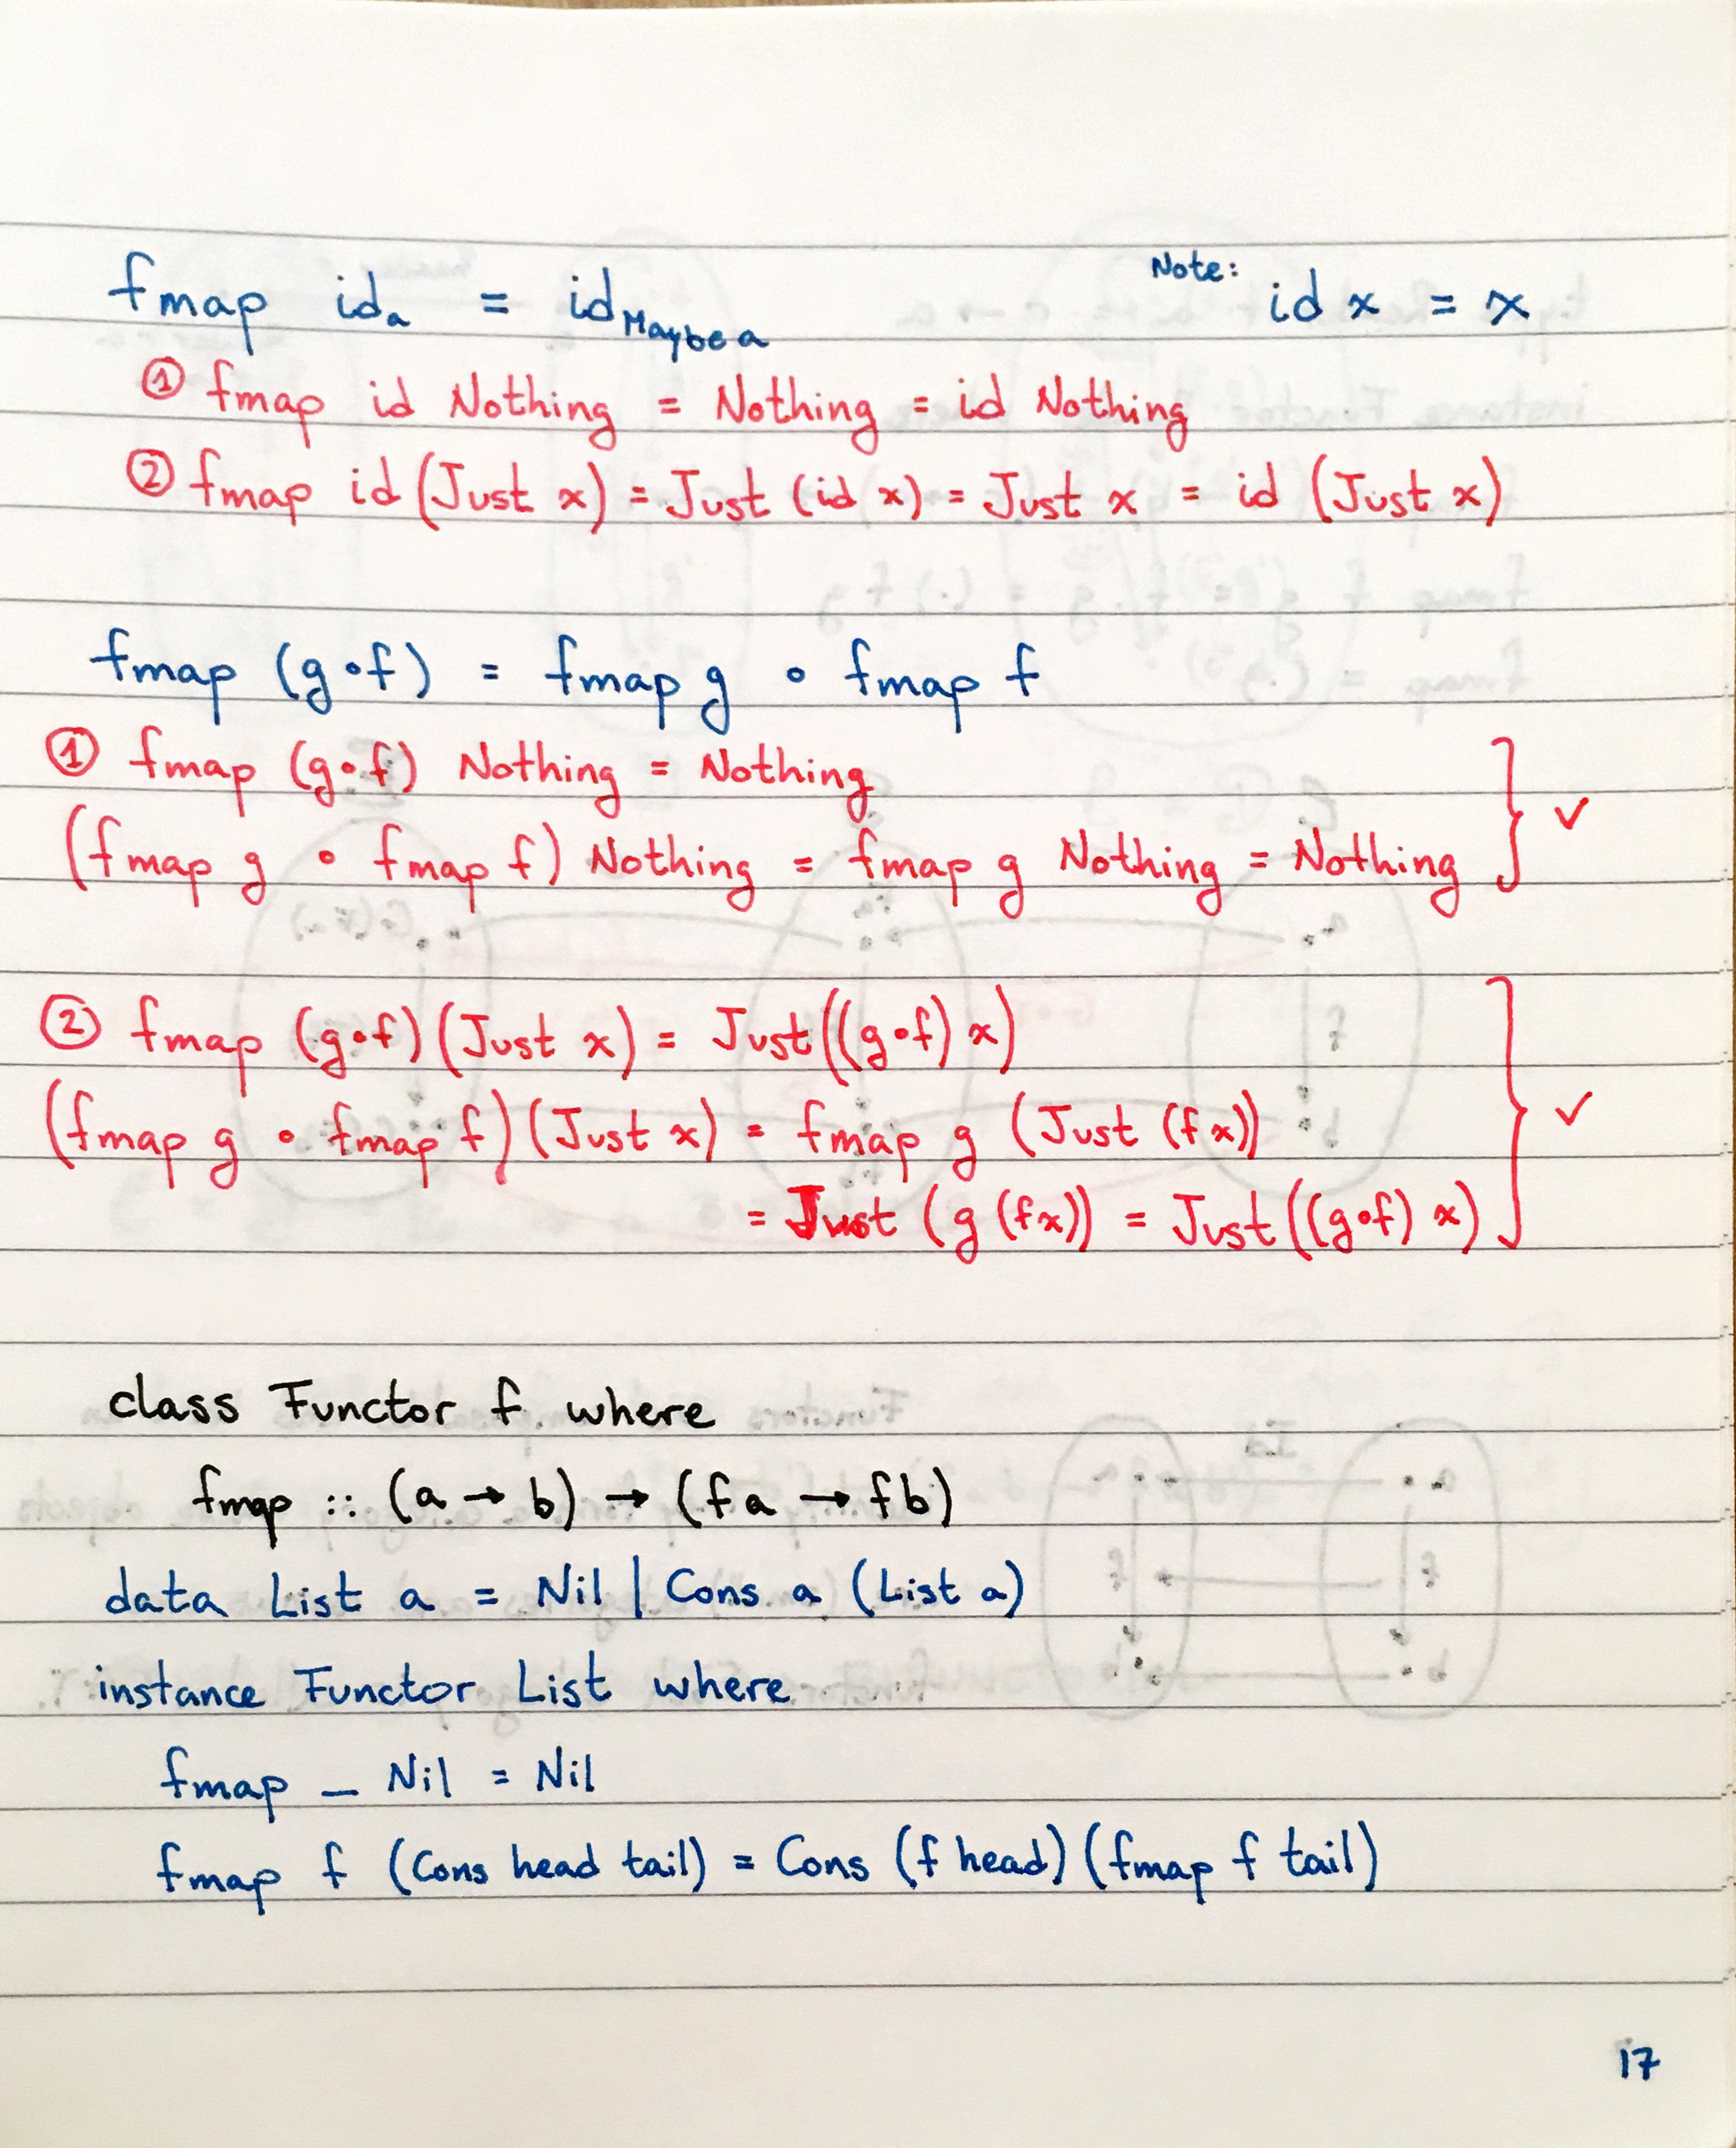 fmap idₐ = id Maybe a Note: id x = x
① fmap id Nothing = Nothing = id Nothing
② fmap id (Just x) = Just (id x) = Just x = id (Just x)
fmap (g∘f) = fmap g ∘ fmap f
① fmap (g∘f) Nothing = Nothing
(fmap g ∘ fmap f) Nothing = fmap g Nothing = Nothing } ✓
② fmap (g∘f) (Just x) = Just ((g∘f) x)
(fmap g ∘ fmap f) (Just x) = fmap g (Just (f x)) } ✓
= Just (g (f x)) = Just ((g∘f) x)
class Functor f where
fmap :: (a → b) → (f a → f b)
data List a = Nil | Cons a (List a)
instance Functor List where
fmap _ Nil = Nil
fmap f (Cons head tail) = Cons (f head) (fmap f tail)
17